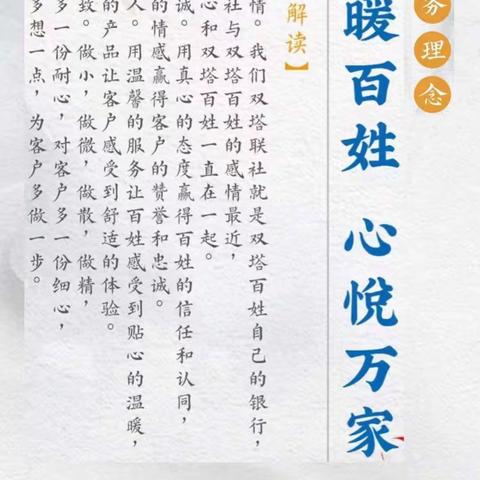 务理念
暖百姓 心悦万家
解读】
情。我们双塔联社就是双塔百姓自己的银行，
社与双塔百姓的感情最近，
心和双塔百姓一直在一起。
诚。用真心的态度赢得百姓的信任和认同，
的情感赢得客户的赞誉和忠诚。
人。用温馨的服务让百姓感受到贴心的温暖，
的产品让客户感受到舒适的体验。
致。做小，做微，做散，做精，
多一份耐心，对客户多一份细心，
多想一点，为客户多做一步。